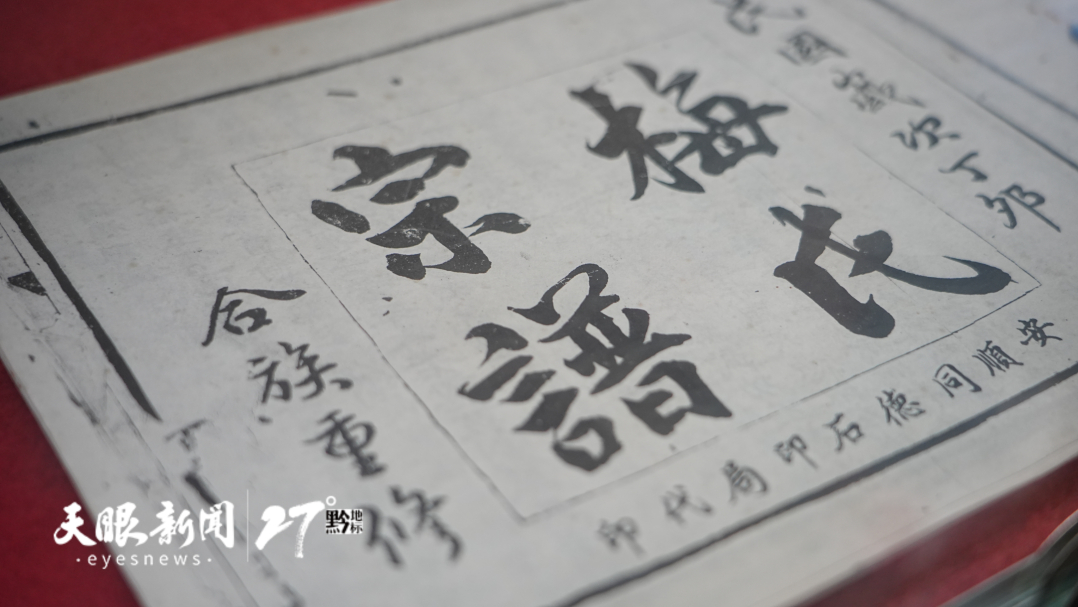 民國歲次丁卯
梅氏
宗譜
合族重修
安順同德石印局代印
天眼新闻
·eyesnews·
27°黔地标